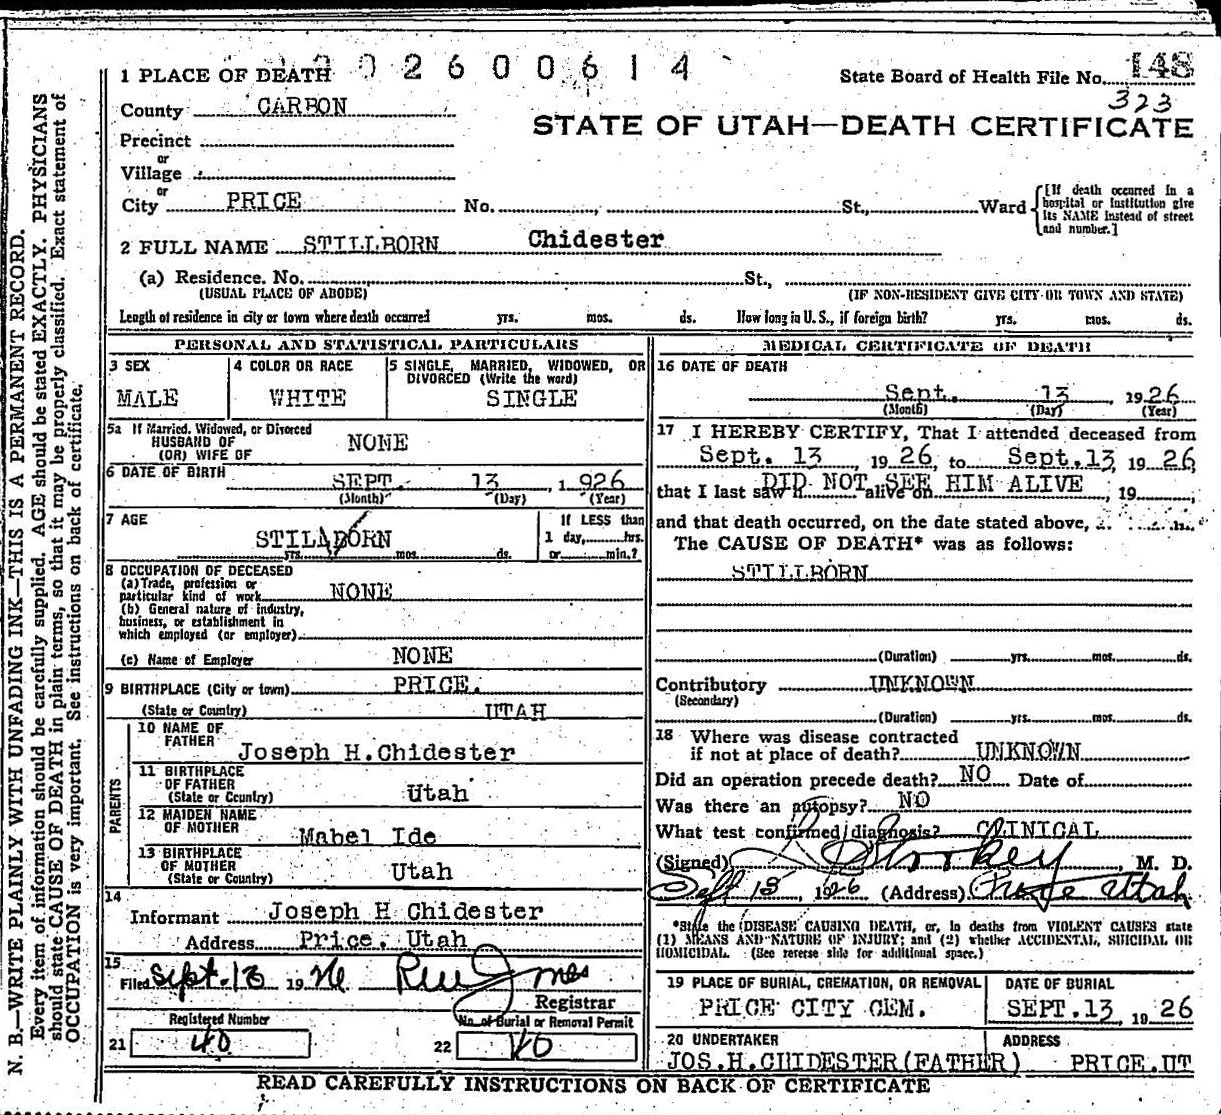 1 PLACE OF DEATH 2600614 State Board of Health File No. 148
County CARBON 323
STATE OF UTAH—DEATH CERTIFICATE
Precinct
or
Village
or
City PRICE No. St., Ward [If death occurred in a hospital or institution give its NAME instead of street and number.]
2 FULL NAME STILLBORN Chidester
(a) Residence. No. St.,
(USUAL PLACE OF ABODE) (IF NON-RESIDENT GIVE CITY OR TOWN AND STATE)
Length of residence in city or town where death occurred yrs. mos. ds. How long in U. S., if foreign birth? yrs. mos. ds.
PERSONAL AND STATISTICAL PARTICULARS
3 SEX
MALE
4 COLOR OR RACE
WHITE
5 SINGLE, MARRIED, WIDOWED, OR
DIVORCED (Write the word)
SINGLE
5a If Married, Widowed, or Divorced
HUSBAND OF
(OR) WIFE OF NONE
6 DATE OF BIRTH SEPT. 13 1926
(Month) (Day) (Year)
7 AGE
STILLBORN
yrs. mos. ds.
If LESS than
1 day, hrs.
or min.?
8 OCCUPATION OF DECEASED
(a) Trade, profession or
particular kind of work NONE
(b) General nature of industry,
business, or establishment in
which employed (or employer)
(c) Name of Employer NONE
9 BIRTHPLACE (City or town) PRICE.
(State or Country) UTAH
PARENTS
10 NAME OF
FATHER Joseph H.Chidester
11 BIRTHPLACE
OF FATHER
(State or Country) Utah
12 MAIDEN NAME
OF MOTHER Mabel Ide
13 BIRTHPLACE
OF MOTHER
(State or Country) Utah
14
Informant Joseph H Chidester
Address Price. Utah
15
Filed Sept. 13 19
Registrar
Registered Number
21 40
No. of Burial or Removal Permit
22 40
MEDICAL CERTIFICATE OF DEATH
16 DATE OF DEATH
Sept. 13 1926
(Month) (Day) (Year)
17 I HEREBY CERTIFY, That I attended deceased from
Sept. 13, 1926, to Sept.13, 1926,
that I last saw h DID NOT SEE HIM ALIVE alive on, 19
and that death occurred, on the date stated above,
The CAUSE OF DEATH* was as follows:
STILLBORN
(Duration) yrs. mos. ds.
Contributory UNKNOWN
(Secondary)
(Duration) yrs. mos. ds.
18 Where was disease contracted
if not at place of death? UNKNOWN
Did an operation precede death? NO Date of
Was there an autopsy? NO
What test confirmed diagnosis? CLINICAL
(Signed) M. D.
13, 1926 (Address) Utah
*State the DISEASE CAUSING DEATH, or, in deaths from VIOLENT CAUSES state
(1) MEANS AND NATURE OF INJURY; and (2) whether ACCIDENTAL, SUICIDAL OR
HOMICIDAL. (See reverse side for additional space.)
19 PLACE OF BURIAL, CREMATION, OR REMOVAL
PRICE CITY CEM.
DATE OF BURIAL
SEPT.13, 1926
20 UNDERTAKER
JOS.H.CHIDESTER(FATHER)
ADDRESS
PRICE.UT
READ CAREFULLY INSTRUCTIONS ON BACK OF CERTIFICATE
N. B.—WRITE PLAINLY WITH UNFADING INK—THIS IS A PERMANENT RECORD.
Every item of information should be carefully supplied. AGE should be stated EXACTLY. PHYSICIANS
should state CAUSE OF DEATH in plain terms, so that it may be properly classified. Exact statement of
OCCUPATION is very important. See instructions on back of certificate.